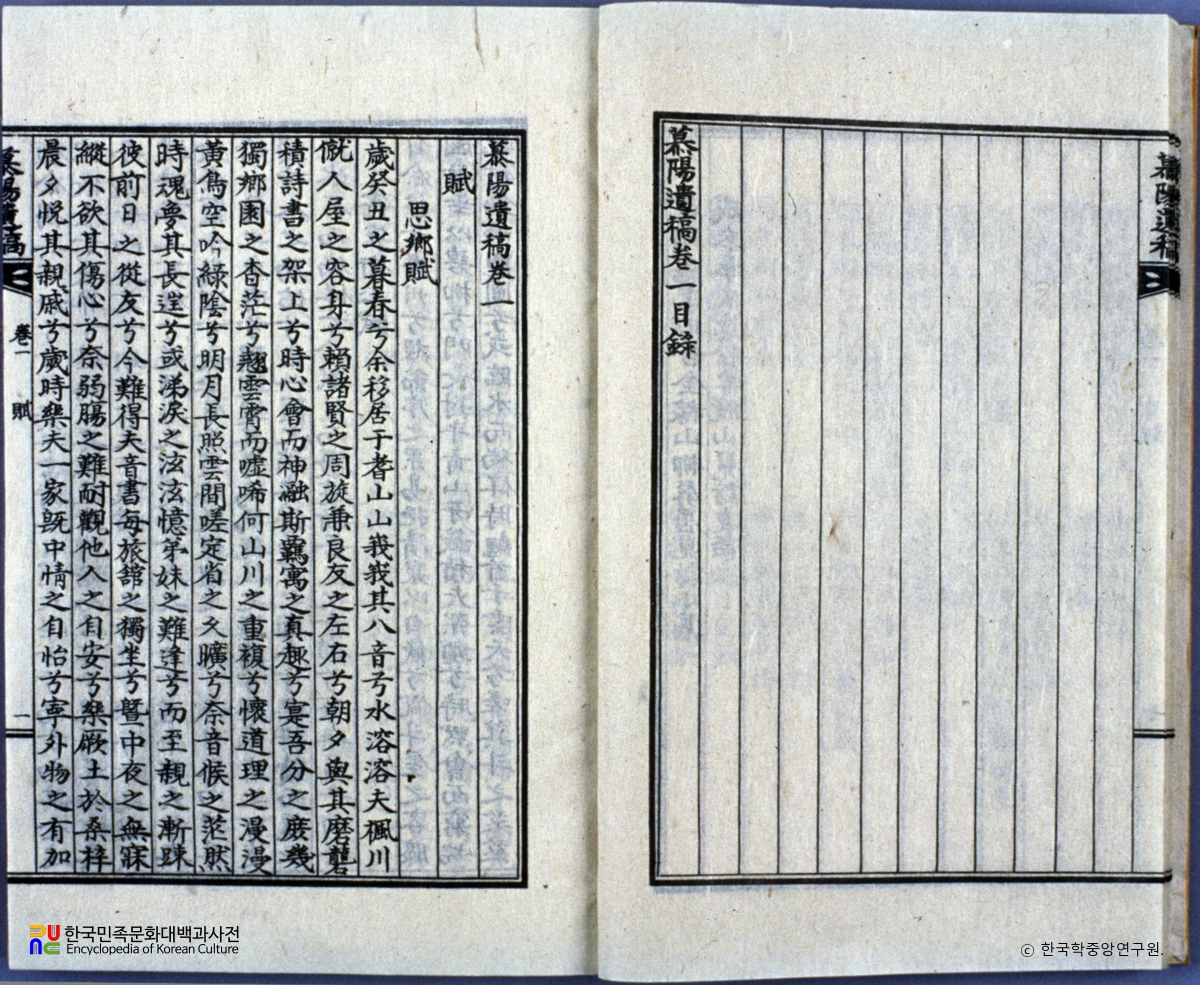 慕陽遺稿
慕陽遺稿卷一目錄
慕陽遺稿卷一
賦
思鄉賦
歲癸丑之暮春兮余移居于耆山山峩峩其八音兮水溶溶夫楓川
僦人屋之容身兮賴諸賢之周旋兼良友之左右兮朝夕與其磨礱
積詩書之架上兮時心會而神融斯羈寓之真趣兮寔吾分之庶幾
獨鄉園之杳茫兮翹雲霄而噓唏何山川之重複兮懷道理之漫漫
黃鳥空吟綠陰兮明月長照雲間嗟定省之久曠兮奈音候之茫然
時魂夢其長逞兮或涕淚之泫泫憶弟妹之難逢兮而至親之漸踈
彼前日之從友兮今難得夫音書每旅舘之獨坐兮暨中夜之無寐
縱不欲其傷心兮奈弱腸之難耐觀他人之自安兮樂厥土於桑梓
晨夕悅其親戚兮歲時樂夫一家旣中情之自怡兮寧外物之有加
慕陽遺稿
卷一
賦
一
한국민족문화대백과사전
Encyclopedia of Korean Culture
ⓒ 한국학중앙연구원.